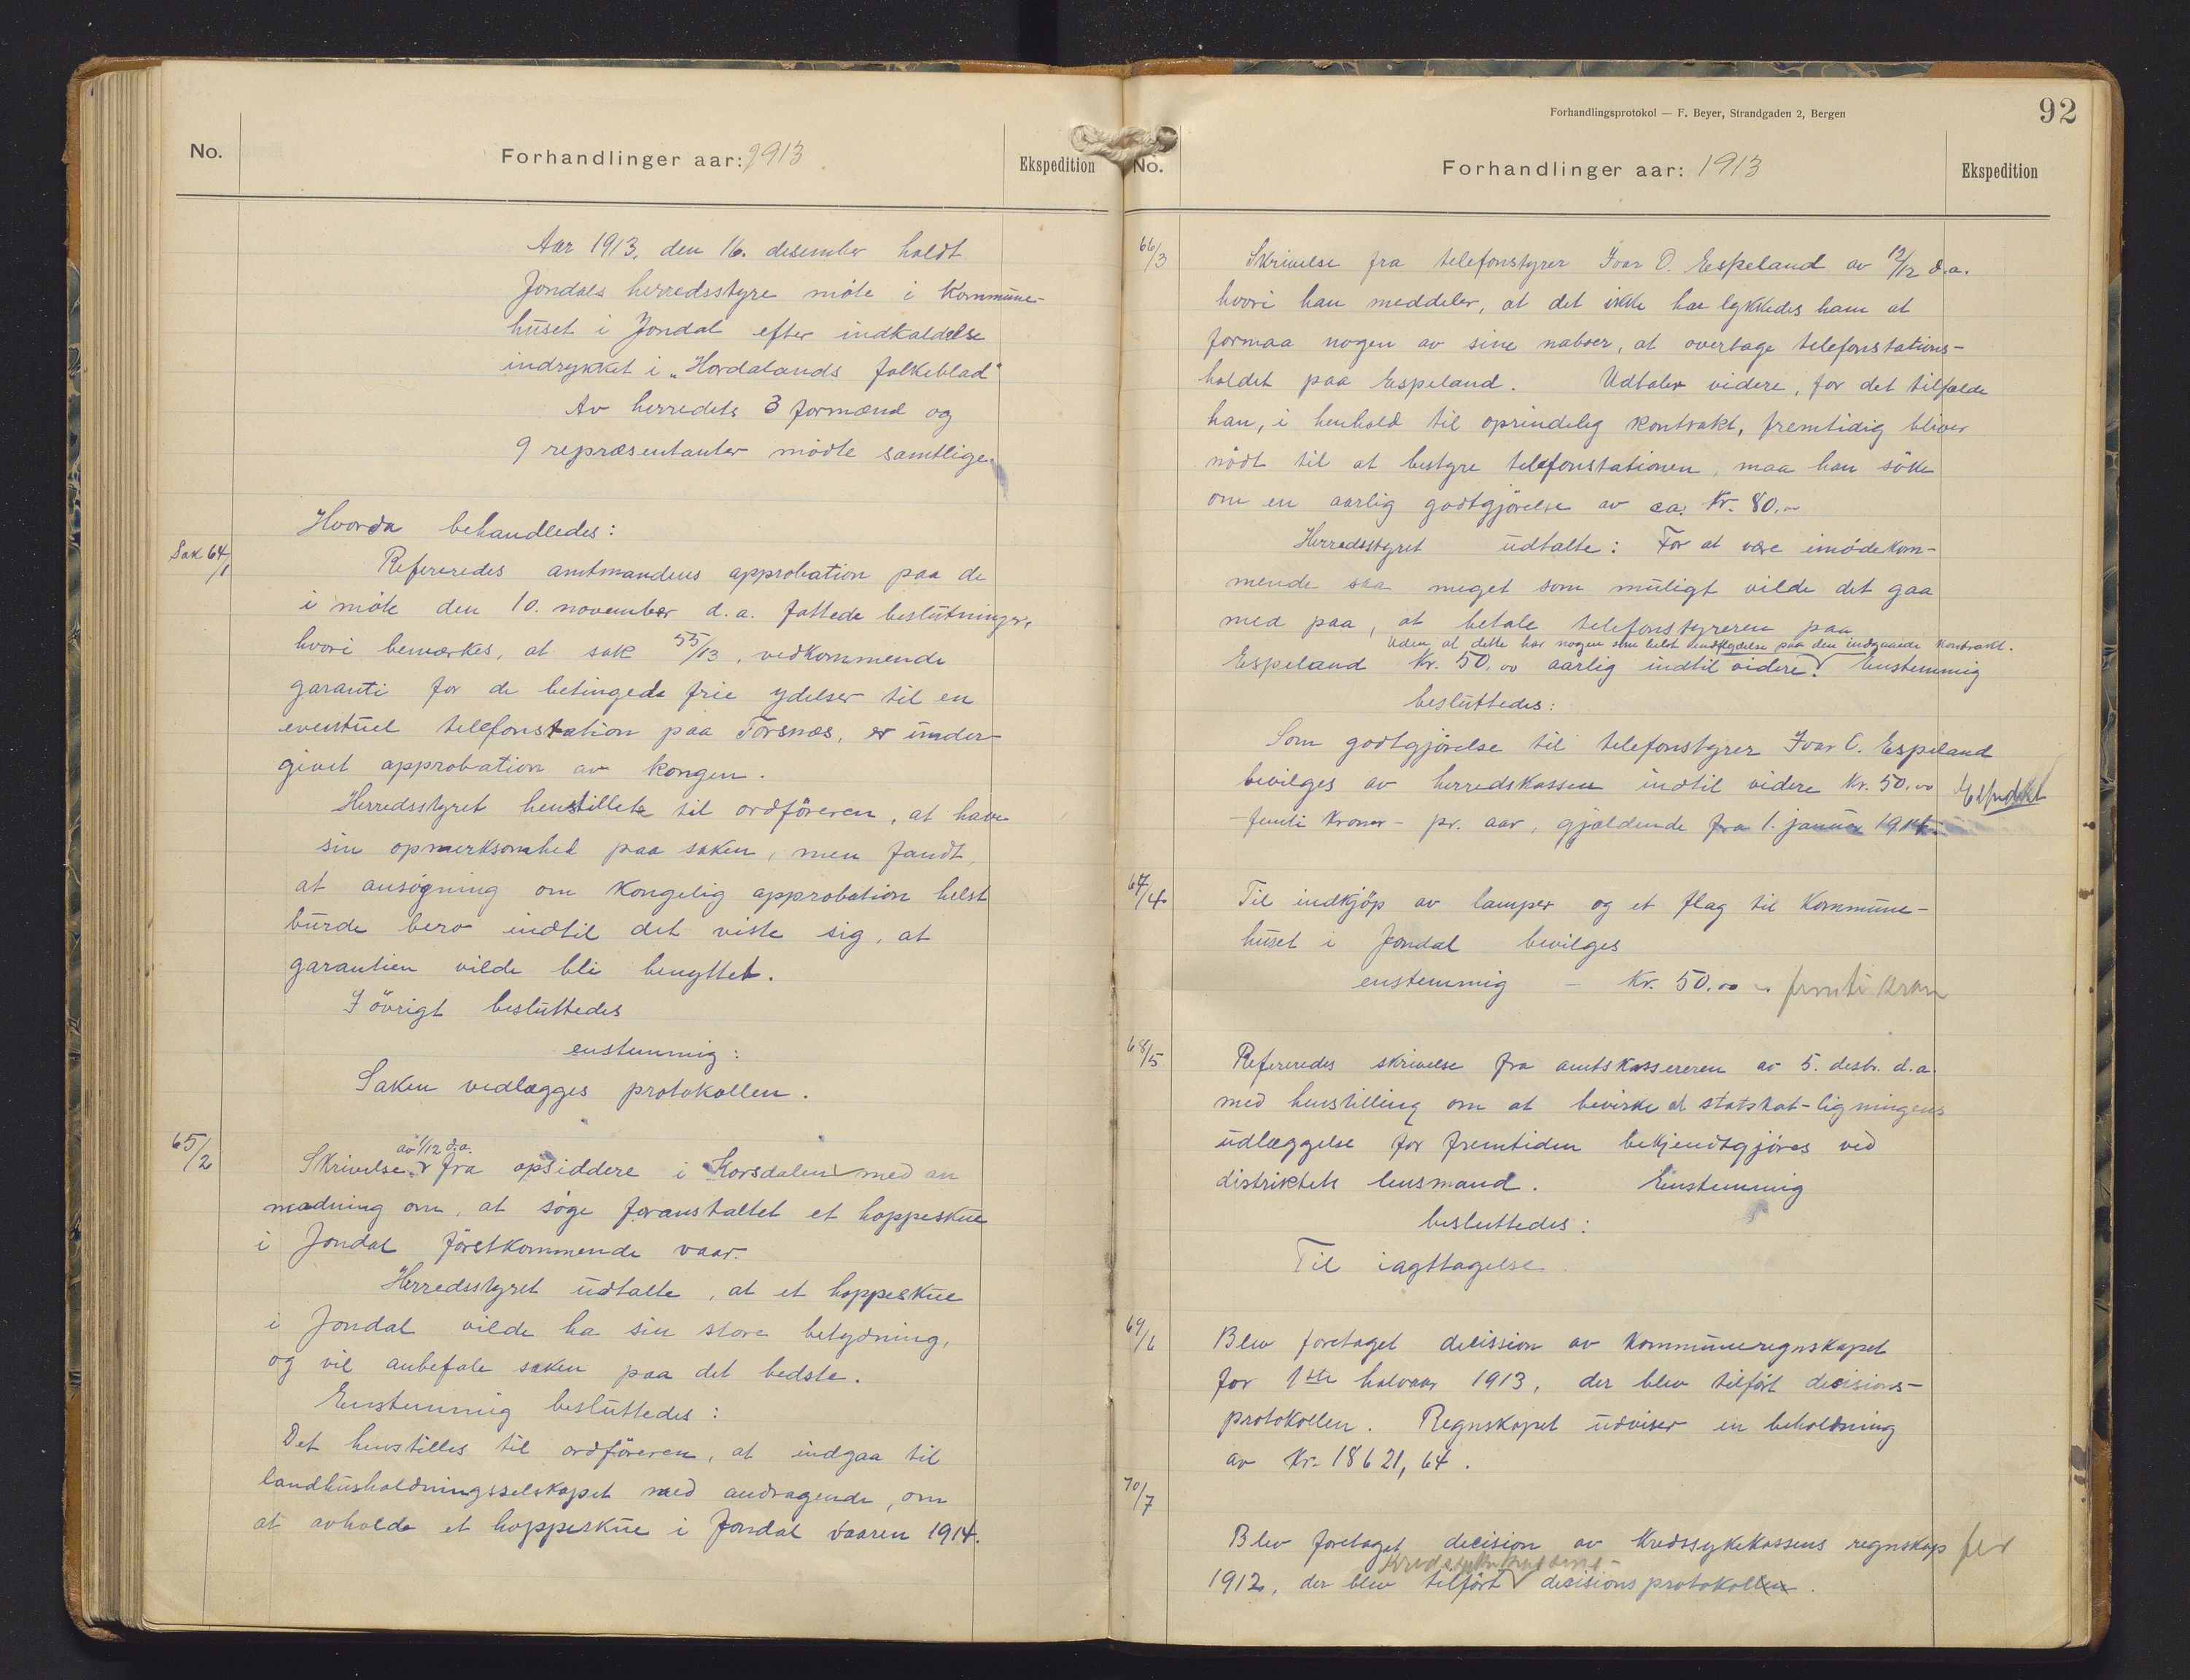 No.
Forhandlinger aar: 1913
Ekspedition
Aar 1913, den 16. desember holdt
Jondals herredsstyre möte i Kommune-
huset i Jondal efter indkaldelse
indrykket i „Hordalands folkeblad"
Av herredets 3 formænd og
9 repræsentanter mödte samtlige.
Hvorda behandledes:
Sak 64/1
Refereredes amtmandens approbation paa de
i möte den 10. november d.a. fattede beslutninger,
hvori bemærkes, at sak 55/13, vedkommende
garanti for de betingede frie ydelser til en
eventuel telefonstation paa Torsnæs, er under-
givet approbation av kongen.
Herredsstyret henstillete til ordföreren, at have
sin opmerksomhed paa saken, men fandt,
at ansögning om Kongelig approbation helst
burde bero indtil det viste sig, at
garantien vilde bli benyttet.
I övrigt besluttedes
enstemmig:
Saken vedlægges protokollen.
65/2
av 1/12 d.a.
Skrivelse fra opsiddere i Korsdalen med an
modning om, at söge foranstaltet et hoppeskue
i Jondal förstkommende vaar.
Herredsstyret udtalte, at et hoppeskue
i Jondal vilde ha sin store betydning,
og vil anbefale saken paa det bedste.
Enstemmig besluttedes:
Det henstilles til ordföreren, at indgaa til
landhusholdningsselskapet med andragende, om
at avholde et hoppeskue i Jondal vaaren 1914.
Forhandlingsprotokol — F. Beyer, Strandgaden 2, Bergen
92
No.
Forhandlinger aar: 1913
Ekspedition
66/3
Skrivelse fra telefonstyrer Ivar O. Espeland av 12/12 d.a.
hvori han meddeler, at det ikke har lykkedes ham at
formaa nogen av sine naboer, at overtage telefonstations-
holdet paa Espeland. Udtaler videre, for det tilfælde
han, i henhold til oprindelig kontrakt, fremtidig bliver
nödt til at bestyre telefonstationen, maa han söke
om en aarlig godtgjörelse av ca. kr. 80.00
Herredsstyret udtalte: For at være imödekom-
mende saa meget som muligt vilde det gaa
med paa, at betale telefonstyreren paa
uden at dette har nogen som helst indflydelse paa den indgaaede Kontrakt.
Espeland kr. 50.00 aarlig indtil videre. Enstemmig
besluttedes:
Som godtgjörelse til telefonstyrer Ivar O. Espeland
bevilges av herredskassen indtil videre kr. 50.00
- femti kroner - pr. aar, gjældende fra 1. januar 1914.
67/4
Til indkjöp av lamper og et flag til Kommune-
huset i Jondal bevilges
enstemmig - kr. 50.00 - femti kroner
68/5
Refereredes skrivelse fra amtskassereren av 5. desbr. d.a.
med henstilling om at bevirke at statskat-ligningens
udlæggelse for fremtiden bekjendtgjöres ved
distriktets lensmand. Enstemmig
besluttedes:
Til iagttagelse.
69/6
Blev foretaget decission av kommuneregnskapet
for 1ste halvaar 1913, der blev tilfört decisions-
protokollen. Regnskapet udviser en beholdning
av kr. 18621,64.
70/7
Blev foretaget decision av Kredssykekassens regnskap for
Kredssykekassens-
1912, der blev tilfört decisionsprotokollen.